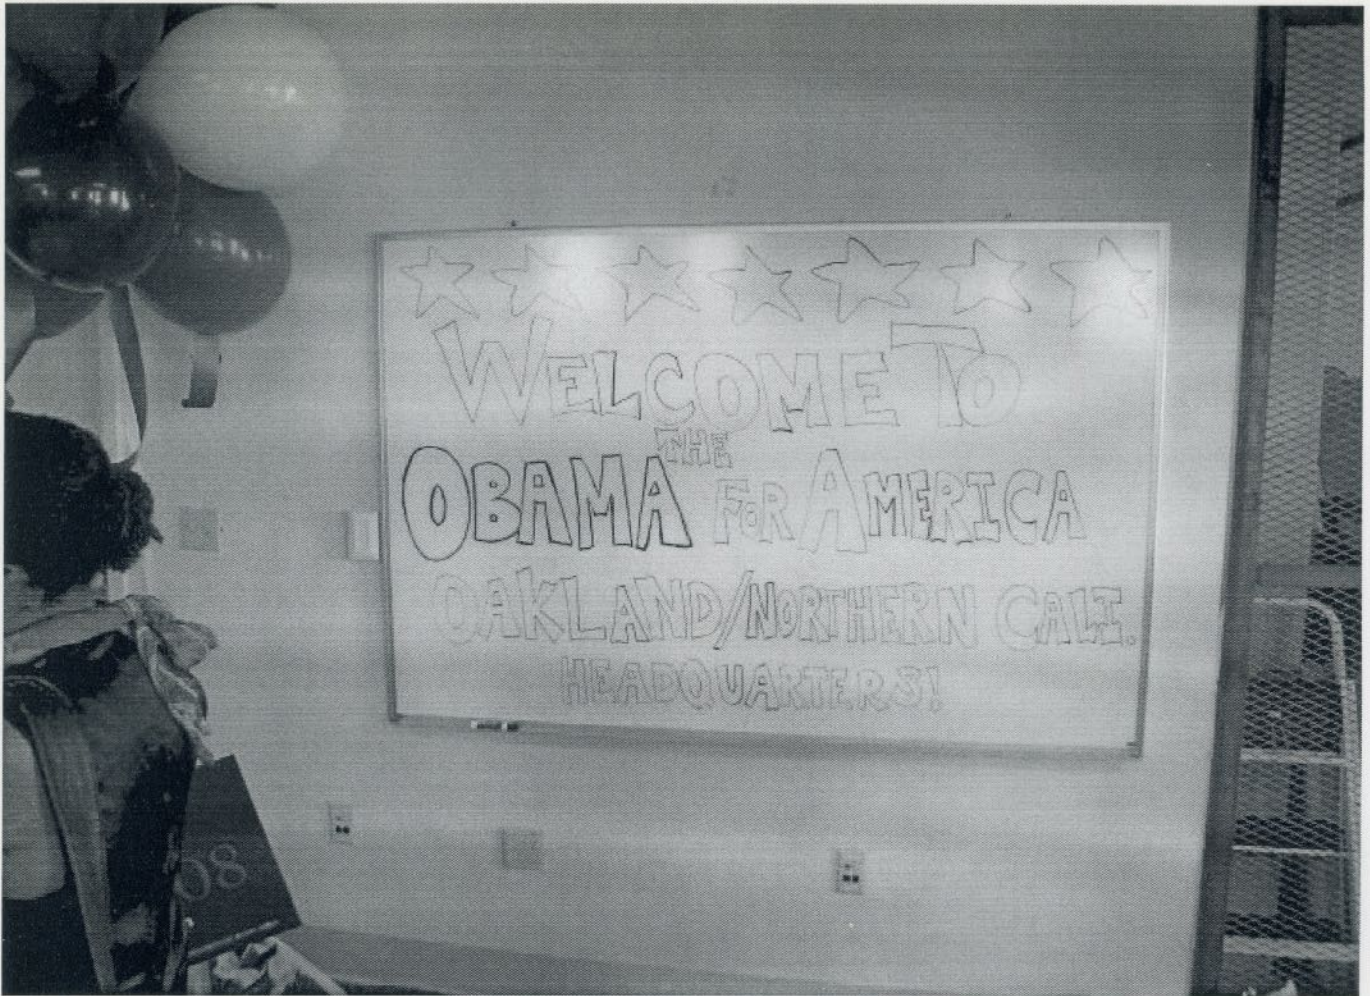 WELCOME TO
THE
OBAMA FOR AMERICA
OAKLAND/NORTHERN CALI.
HEADQUARTERS!
08